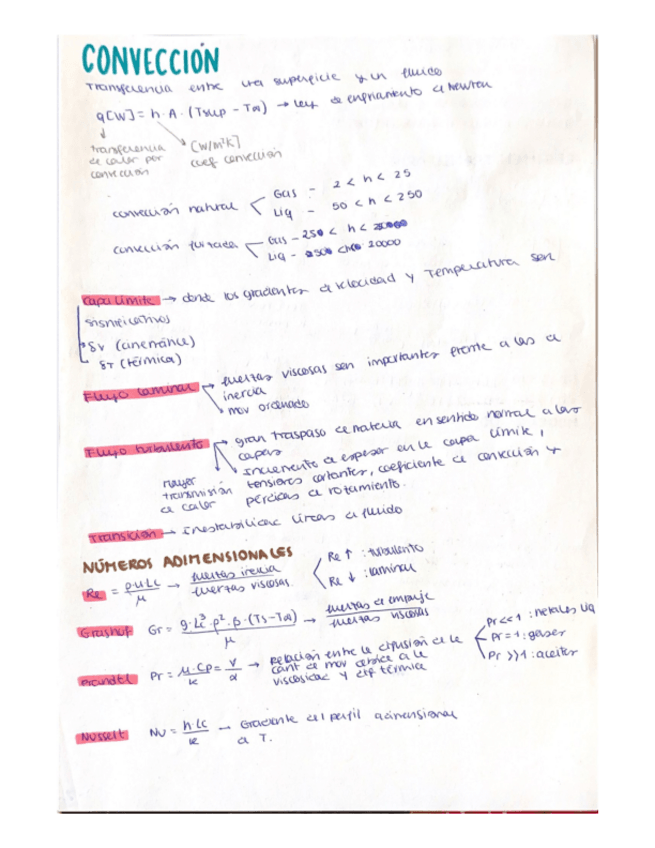 CONVECCIÓN
Transferencia entre una superficie y un fluido
q[W] = h · A · (Tsup - T∞) → Ley de enfriamiento de newton
transferencia de calor por convección
[W/m²K] coef convección
convección natural < Gas - 2 < h < 25
Liq - 50 < h < 250
convección forzada Gas - 250 < h <
Liq - 2500 < h < 20000
Capa Límite → donde los gradientes de velocidad y Temperatura son
significativos
δv (cinemática)
δT (térmica)
Flujo laminar → fuerzas viscosas son importantes frente a las de
inercia
mov ordenado
Flujo turbulento → gran traspaso de materia en sentido normal a las
capas
Incremento de espesor en la capa límite,
tensiones cortantes, coeficiente de convección y
pérdidas de rozamiento.
mayor
transmisión
de calor
Transición → Inestabilidad líneas de fluido
NÚMEROS ADIMENSIONALES
Re = ρ·u·Lc / μ → fuerzas inercia / fuerzas viscosas
Re ↑ : turbulento
Re ↓ : laminar
Grashof Gr = g·Lc³·ρ²·β·(Ts-T∞) / μ → fuerzas de empuje / fuerzas viscosas
Prandtl Pr = μ·Cp / k = ν / α → Relación entre la difusión de la
cant de mov debida a la
viscosidad y dif térmica
Pr<<1 : metales liq
Pr=1 : gases
Pr >>1 : aceites
Nusselt Nu = h·Lc / k → Gradiente del perfil adimensional
de T.